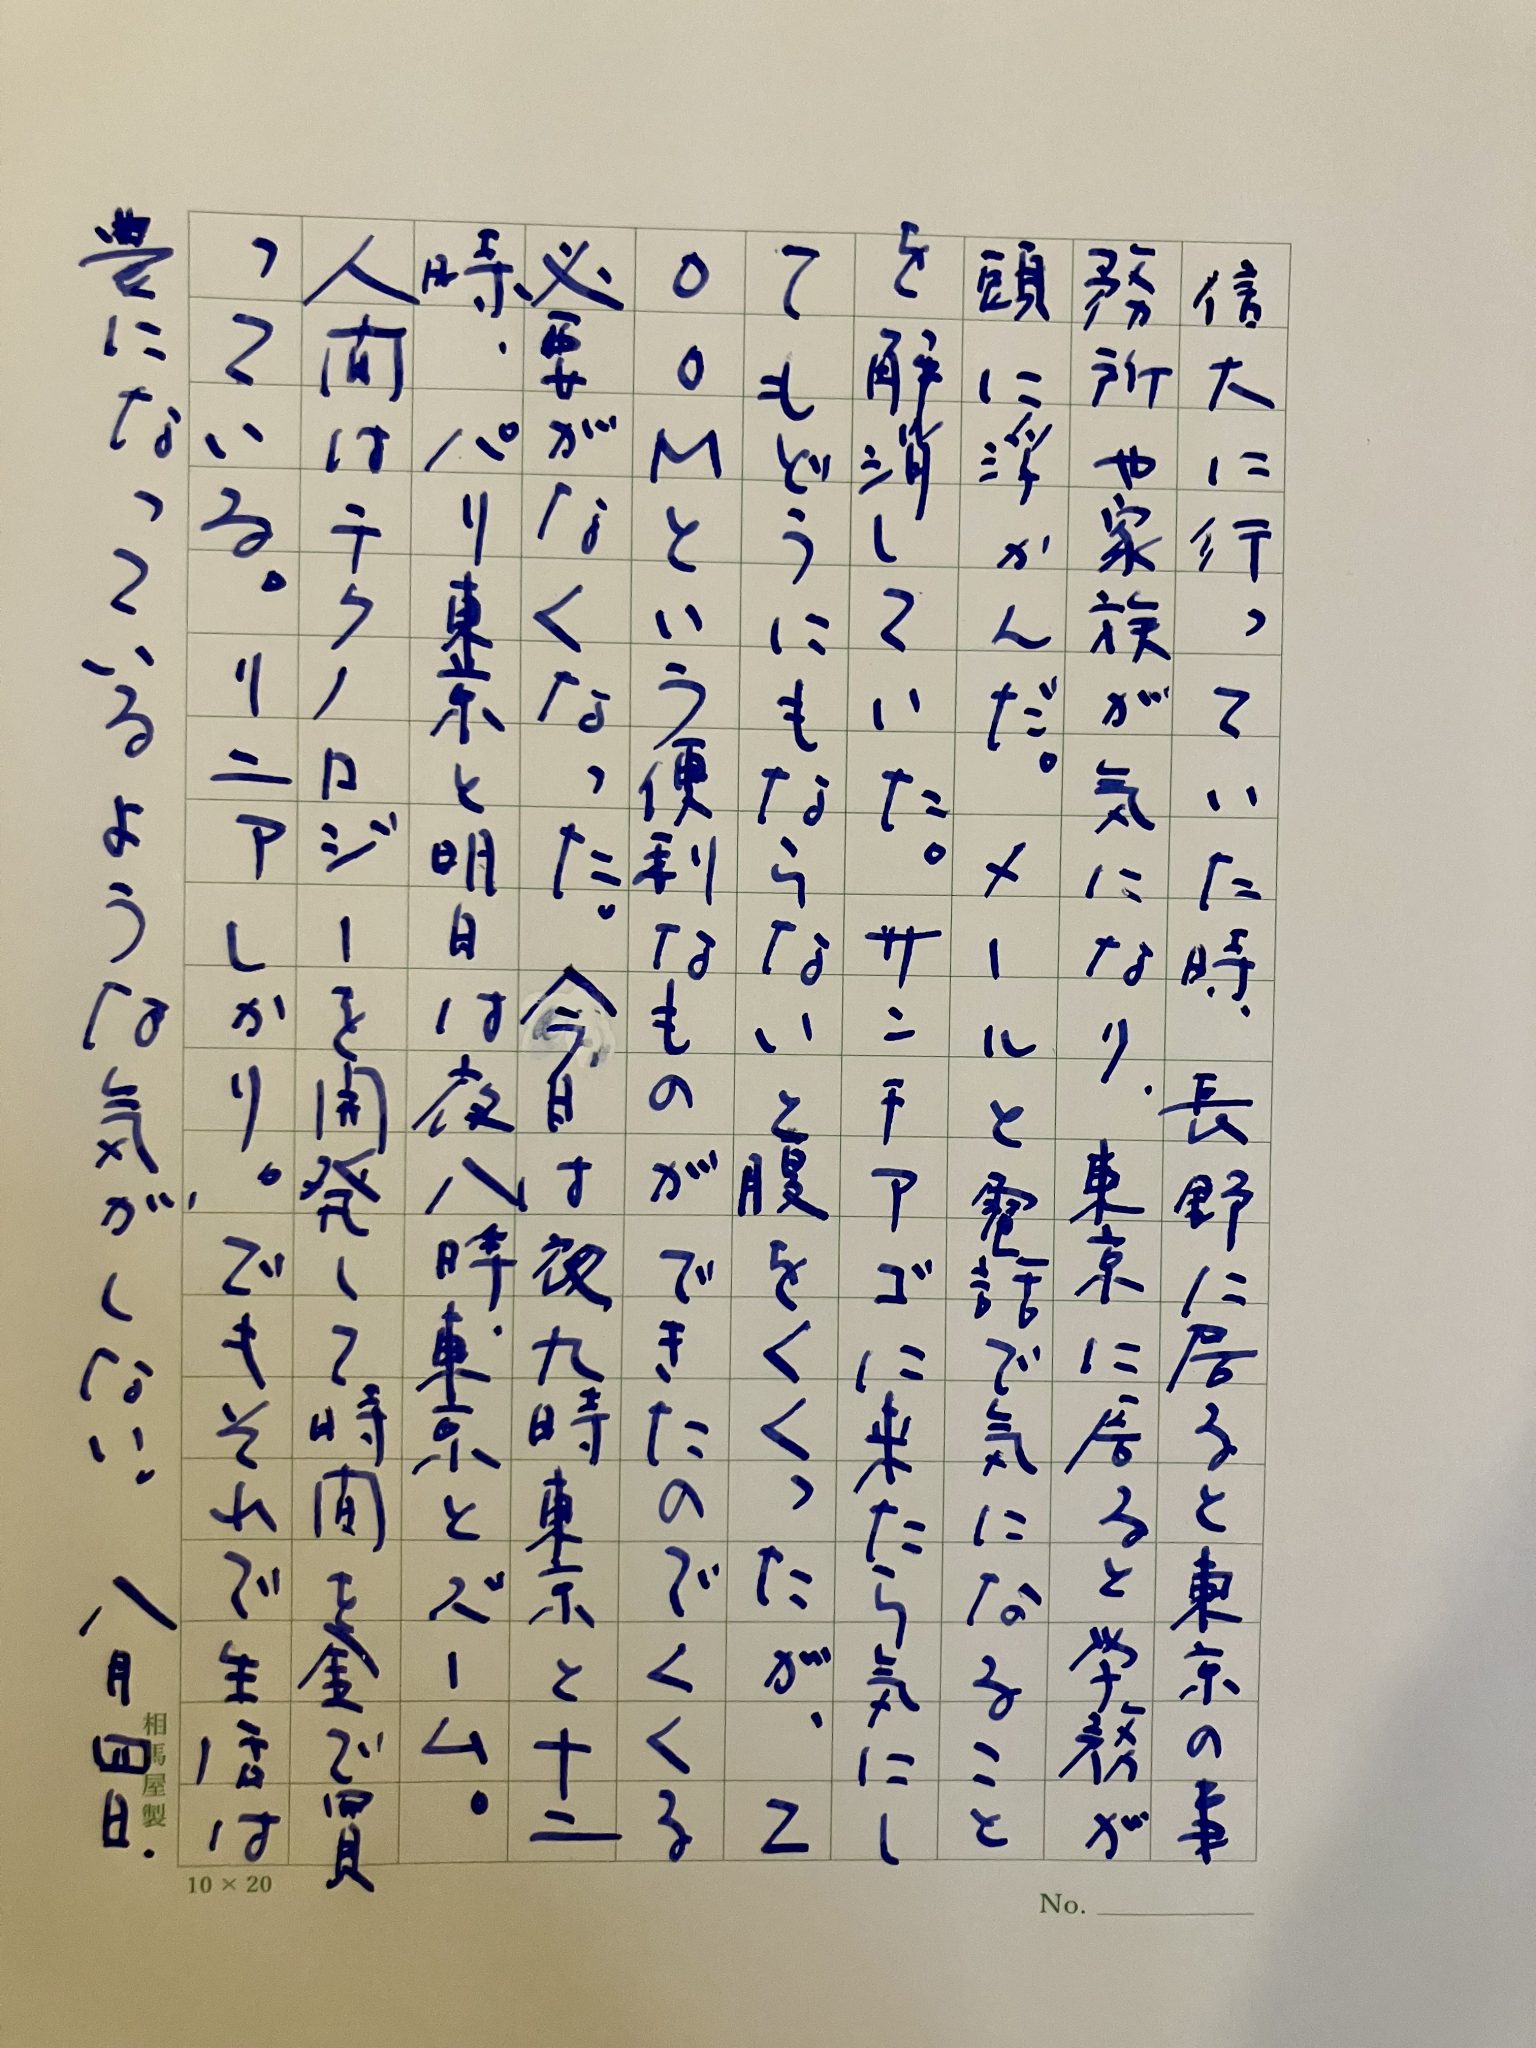 信大に行っていた時、長野に居ると東京の事
務所や家族が気になり、東京に居ると学務が
頭に浮かんだ。メールと電話で気になること
を解消していた。サンチアゴに来たら気にし
てもどうにもならないと腹をくくったが、Z
OOMという便利なものができたのでくくる
必要がなくなった。今日は夜九時東京と十二
時、パリ東京と明日は夜八時、東京とベーム。
人間はテクノロジーを開発して時間を金で買
っている。リニアしかり。でもそれで生活は
豊になっているような気がしない。八月四日.
相馬屋製
10×20
No.